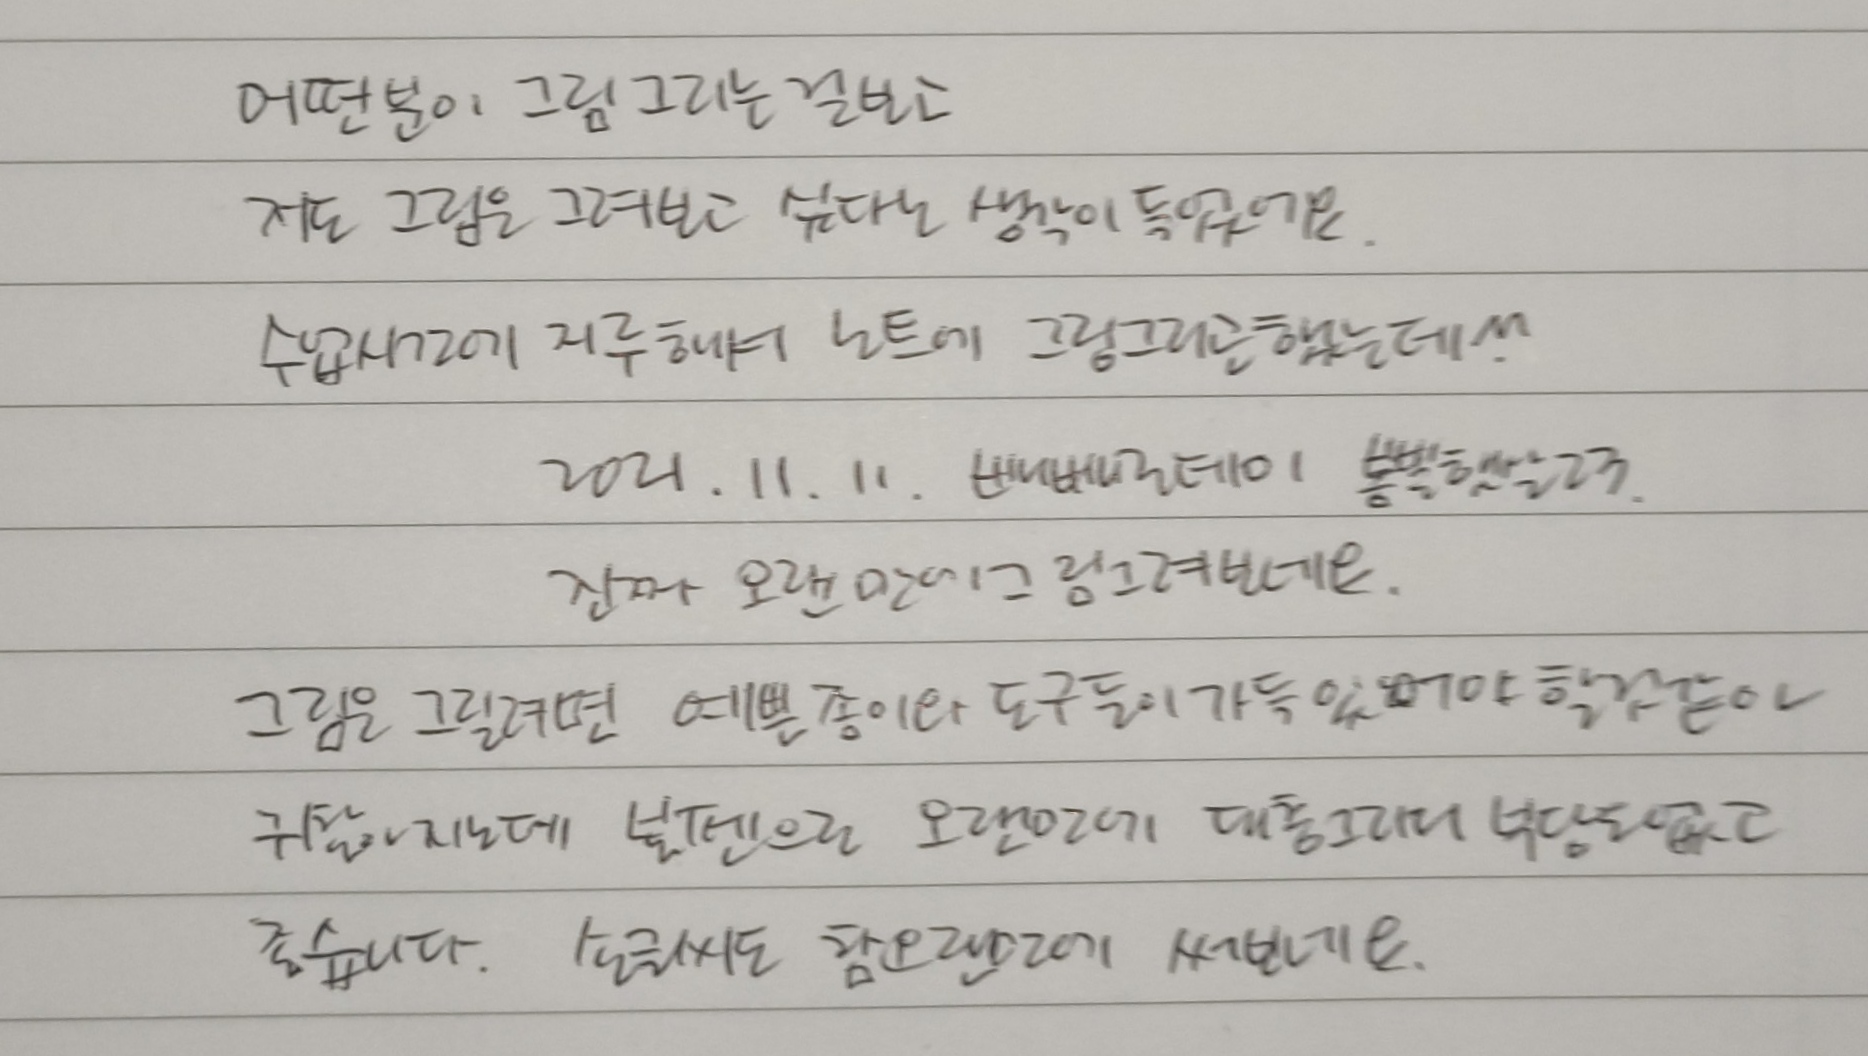 어떤분이 그림 그리는 걸보고
저도 그림은 그려보고 싶다는 생각이 들었어요.
수업시간에 지루해서 노트에 그림그리곤했는데^^
2021. 11. 11. 빼빼로데이
진짜 오랜만에 그림그려보네요.
그림은 그릴려면 예쁜 종이와 도구들이 가득 있어야 할것같아
귀찮아지는데 볼펜으로 오랜만에 대충그리니 부담도없고
좋습니다. 손글씨도 참오랜만에 써보네요.